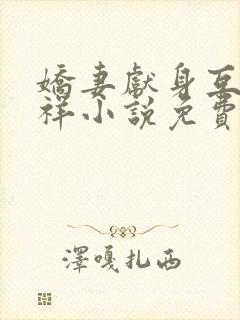 嬌妻獻身互
祥小說免費
澤嘎扎西